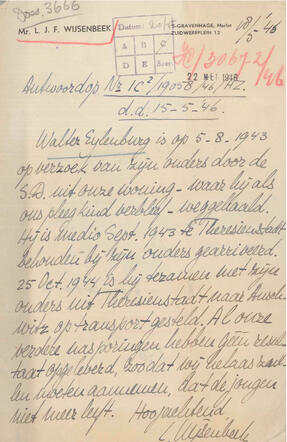 Doss. 3666
Mr. L. J. F. WIJSENBEEK
's-GRAVENHAGE,
ZUIDWERFPLEIN 12
18/5 '46
Datum:
A B C
D E
22 MEI 1946
Antwoord op No 1C2/19058/46/HZ.
d.d. 15-5-46.
Walter Eylenburg is op 5-8-1943
op verzoek van zijn ouders door de
S.D. uit onze woning - waar hij als
ons pleegkind verbleef - weggehaald.
Hij is medio Sept. 1943 te Theresienstadt
behouden bij zijn ouders gearriveerd.
25 Oct. 1944 is hij tezamen met zijn
ouders uit Theresienstadt naar Ausch-
witz op transport gesteld. Al onze
verdere nasporingen hebben geen resul-
taat opgeleverd, zoodat wij helaas
moeten aannemen, dat de jongen
niet meer leeft. Hoogachtend
L. Wijsenbeek